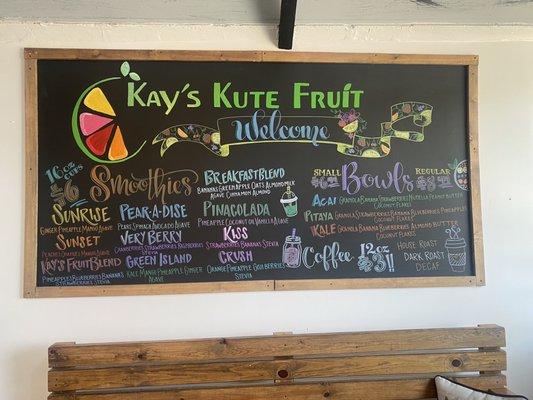 Kay's Kute Fruit
Welcome
16oz cups
$6
Smoothies
Sunrise
Ginger Pineapple Mango
Sunset
Peaches Mango Agave
Kay's Fruit Blend
Pineapples Blueberries Bananas
Strawberries Stevia
Pear-A-Dise
Pears Spinach Avocado Agave
Very Berry
Cranberries Strawberries Blueberries
Bananas Stevia
Green Island
Kale Mango Pineapple Ginger
Agave
Breakfast Blend
Bananas Green Apple Oats Almond Milk
Agave Cinnamon Almond
Pinacolada
Pineapple Coconut Oil Vanilla Agave
Kiss
Strawberries Bananas Stevia
Crush
Orange Pineapple Goji Berries
Stevia
Small
Bowls
Regular
Acai Granola Strawberries Honey Nutella Peanut Butter
Coconut Flakes
Pitaya Granola Strawberries Banana Blueberries Almond Butter
Coconut Flakes
Kale Granola Banana Strawberries Blueberries Almond
Coconut Flakes
Coffee
12oz
$3
House Roast
Dark Roast
Decaf